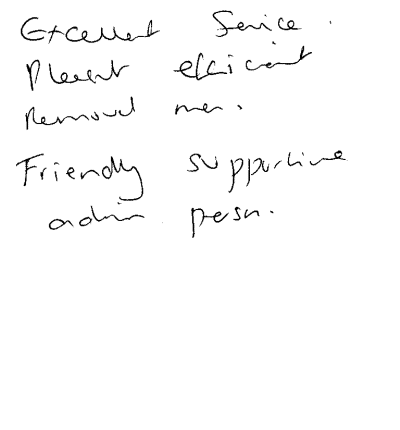 Excellent Service.
Pleasant efficient
Removal men.
Friendly supportive
admin person.